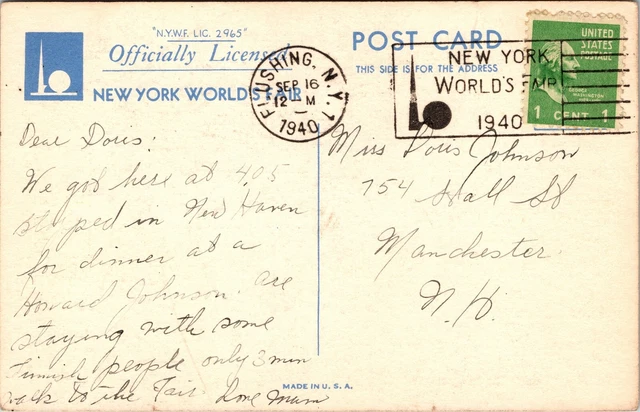 "N.Y.W.F. LIC. 2965"
Officially Licensed
NEW YORK WORLD'S FAIR
POST CARD
THIS SIDE IS FOR THE ADDRESS
FLUSHING, N.Y. 1
SEP 16
12 - M
1940
NEW YORK
WORLD'S FAIR
1940
UNITED
STATES
POSTAGE
GEORGE
WASHINGTON
1 CENT 1
Dear Doris.
We got here at 4.05
stopped in New Haven
for dinner at a
Howard Johnson. are
staying with some
Finnish people only 3 min
walk to the Fair. Love Mum
Miss Doris Johnson
754 Hall St
Manchester
N. H.
MADE IN U. S. A.